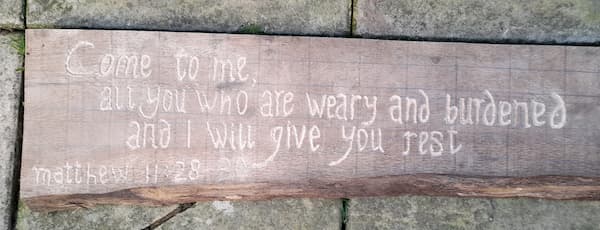 Come to me,
all you who are weary and burdened
and I will give you rest
matthew 11:28